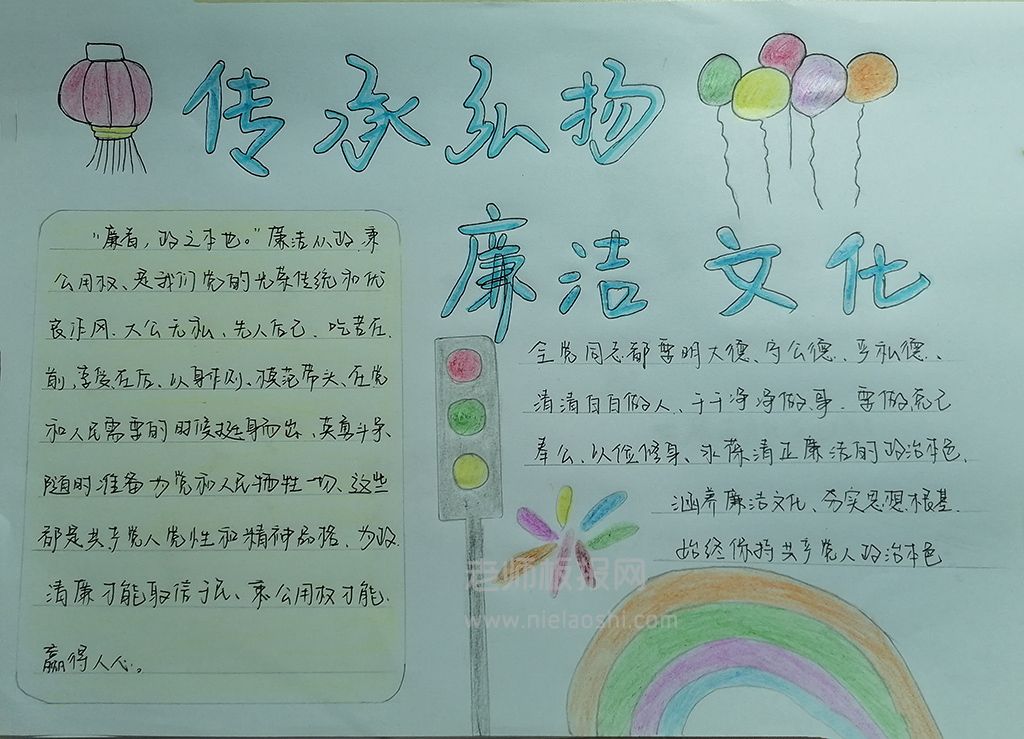 传承弘扬
廉洁文化
“廉者，政之本也。”廉洁从政，秉
公用权、是我们党的光荣传统和优
良作风.大公无私、先人后己、吃苦在
前，享受在后、以身作则、模范带头、在党
和人民需要的时候挺身而出、英勇斗争、
随时准备为党和人民牺牲一切、这些
都是共产党人党性和精神品格、为政
清廉才能取信于民、秉公用权才能
赢得人心。
全党同志都要明大德、守公德、严私德、
清清白白做人、干干净净做事.要做克己
奉公、以俭修身、永葆清正廉洁的政治本色.
涵养廉洁文化、夯实思想根基.
始终保持共产党人政治本色
老师板报网
www.nielaoshi.com